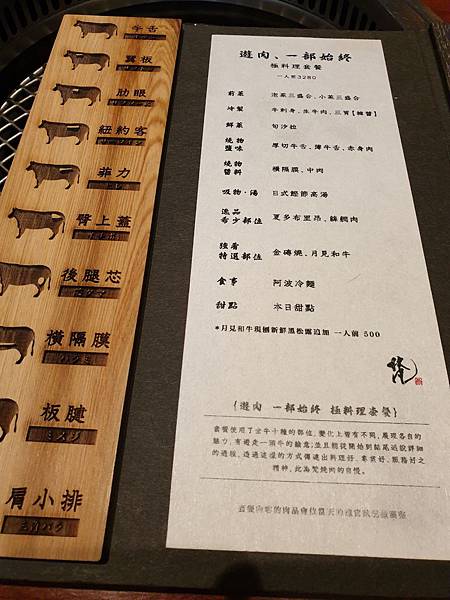 牛舌
翼板
肋眼
紐約客
菲力
臀上蓋
後腿芯
橫隔膜
ハラミ
板腱
ミスジ
肩小排
三角バラ
遊肉、一部始終
極料理套餐
一人前3280
前菜 泡菜三盛合、小菜三盛合
冷製 牛刺身、生牛肉、三賞【辣醬】
鮮菜 旬沙拉
燒物 鹽味 厚切牛舌、薄牛舌、赤身肉
燒物 醬料 橫隔膜、中肉
吸物・湯 日式鰹節高湯
逸品 希少部位 夏多布里昂、絲綢肉
獨肩 特選部位 金磚燒、月見和牛
食事 阿波冷麵
甜點 本日甜點
*月見和牛現刨新鮮黑松露追加 一人前 500
{遊肉 一部始終 極料理套餐}
套餐使用了全牛十種的部位，變化上皆有不同，展現各自的
魅力，有遊走一頭牛的驗意；並且能從開始到結尾述說詳細
的過程，透過這樣的方式傳達出料理好、專業好、服務好之
精神，此為梵燒肉的自慢。